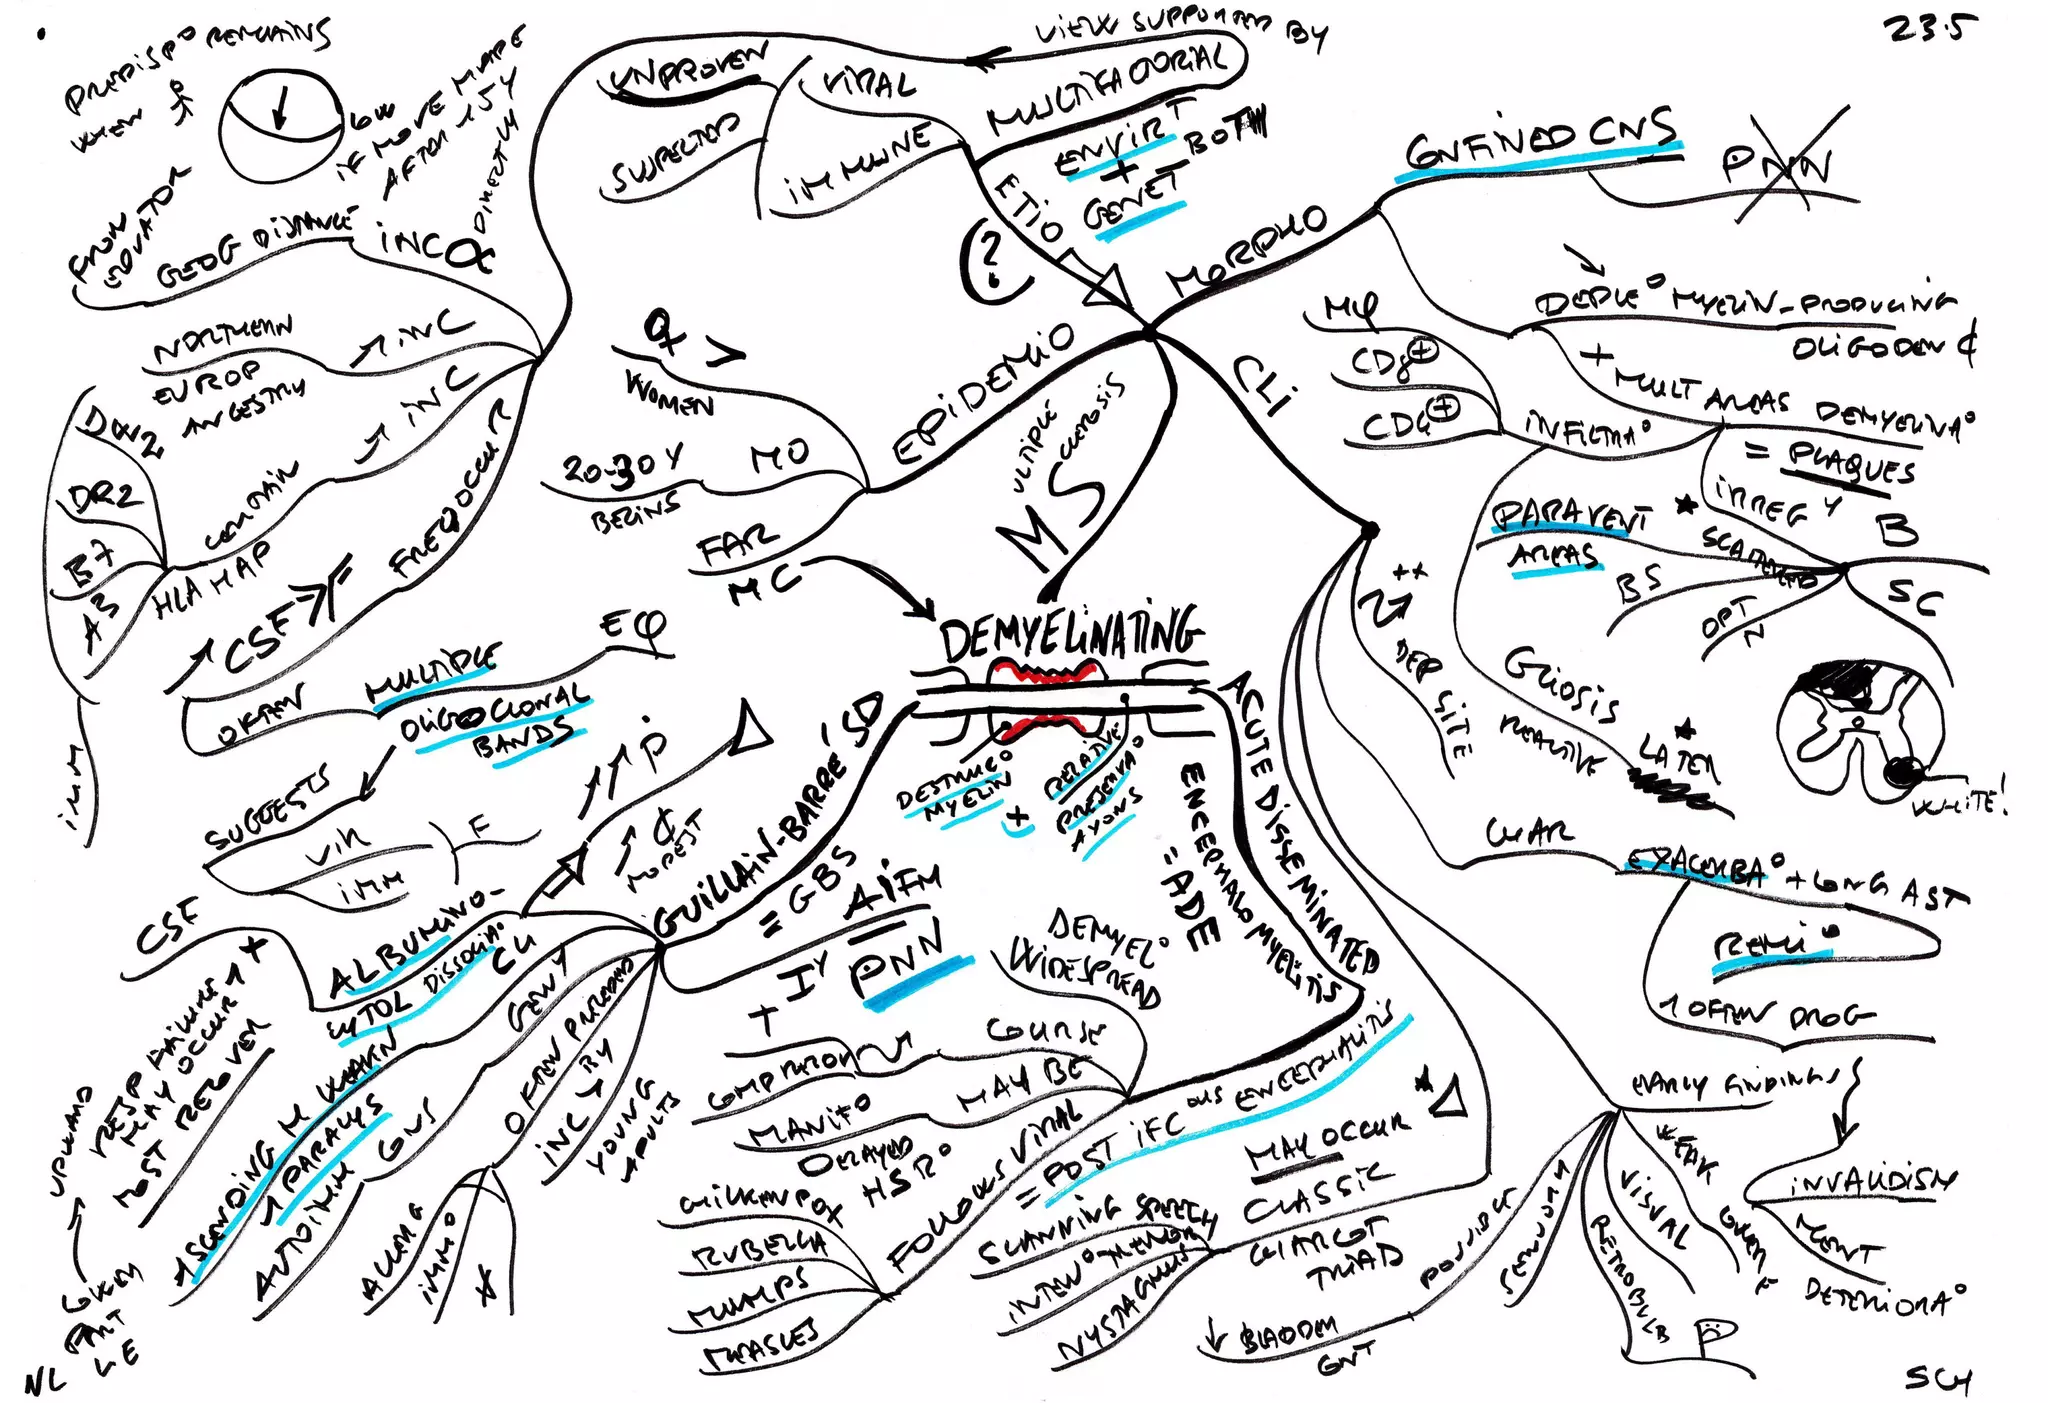 PREDISPº REMAINS
WHEN
LOW
IF MOVE MADE
AFTER 15 Y
FROM
EQUATOR
GEOG DISTANCE
INC ∝
DIRECTLY
NORTHERN
EUROP
ANCESTRY
↗ INC
CERTAIN
HLA HAP
↗ INC
DW2
DR2
B7
A3
IMM
FREQ OCCUR
↗ CSF
OFTEN
MULTIPLE
OLIGOCLONAL
BANDS
SUGGESTS
VIR
IMM
F
UNPROVEN
SUSPECTED
VIRAL
IMMUNE
VIEW SUPPORTED BY
MULTIFACTORIAL
ENVIRT
+
GENET
BOTH
ETIO
(?)
23.5
MORPHO
CONFINED CNS
PNN
DEPLEº MYELIN-PRODUCING
OLIGODEN ¢
+
MULT AREAS DEMYELINAº
= PLAQUES
INFILTRAº
Mφ
CD8 +
CD4 +
IRREGY
SCATTERED
B
SC
OPT
N
BS
PARAVENT
AREAS
GLIOSIS
REACTIVE
LATER
WHITE!
EPIDEMIO
♀ >
WOMEN
20-30 Y
MO
BEGINS
FAR
MC
MULTIPLE
SCLEROSIS
MS
CLI
DEP SITE
CHAR
EXACERBAº + LONG AST
REMIº
1 OFTEN PROG
INVALIDISM
MENT
DETERIORAº
EARLY FINDINGS
WEAK
LOWER E
VISUAL
RETROBULB
SENSORY
POSSIBLE
↓ BLADDER
CNT
MAY OCCUR
CLASSIC
CHARCOT
TRIAD
SCANNING SPEECH
INTENº TREMOR
NYSTAGMUS
DEMYELINATING
DESTRUCº
MYELIN
+
RELATIVE
PRESERVAº
AXONS
ACUTE DISSEMINATED
ENCEPHALOMYELITIS
= ADE
= POST IFCOUS ENCEPHALITIS
DEMYELº
WIDESPREAD
COURSE
MAY BE
MANIFO
DELAYED
HSRº
FOLLOWS VIRAL
CHICKENPOX
RUBELLA
MUMPS
MEASLES
GUILLAIN-BARRÉ SD
= GBS
AIFM
+ IY
PNN
↗ ¢
MODEST
↗↗ P
CSF
ALBUMINO-
CYTOL DISSOCIAº
CLI
ASCENDING M WEAKN
↗ PARALYS
RESP FAILURE
MAY OCCUR
MOST RECOVER
UPWARD
LE
GEN Y
GNS
AUTOIMM
OFTEN PRECEDED
BY
ALLERG
IMMº
INC Y
YOUNG
ADULTS
NL
SCH